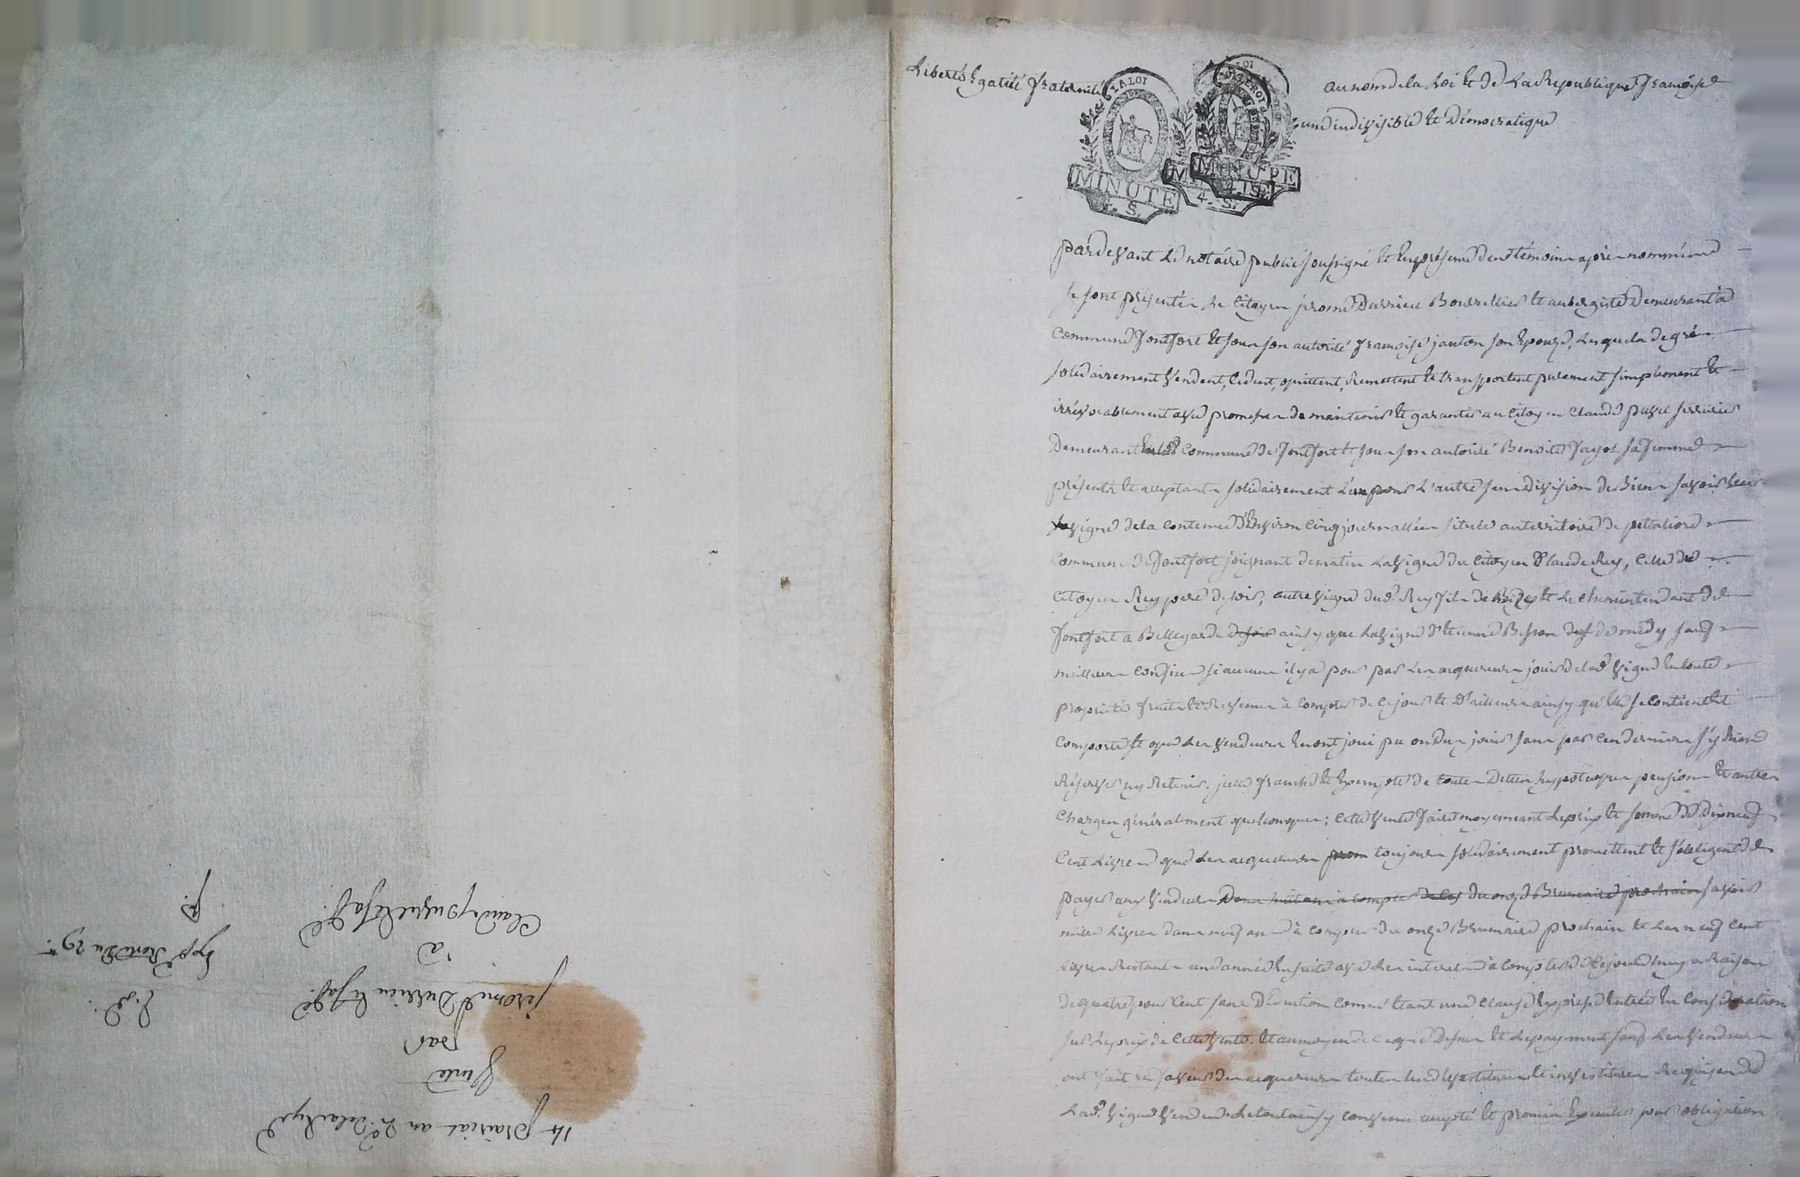 Liberté Egalité fraternité
au nom de la Loi et de La République françoise
une indivisible et Démocratique
LA LOI
MINUTE
4. S.
LA LOI
LE ROI
MINUTE
4. S.
pardevant Le notaire public soussigné et En présence des témoins après nommés
se sont présentés le Citoyen jerome Durrieu Bourrellier et aubergiste Demeurant à
Commune Fontfort et sous son autorité françoise janton son Epouze, Lesquels de gré
solidairement Vendent, Cedent, quittent, Remettent et transportent purement simplement et
irrévocablement avec promesse de maintenir et garantir au Citoyen Claude serrurier
Demeurant Commune de Fontfort et sous son autorité Benoite Fayot sa femme
présents et acceptants solidairement L'un pour L'autre sans division de Biens savoir
vigne de la contenue D'Environ Cinq journallées située au territoire de
Commune de Fontfort joignant de matin La vigne du Citoyen Claude Rey, Celle du
Citoyen Rey père de soir, autre vigne dud. Rey fils de Bize et Le chemin tendant de
Fontfort a Bellegarde ainsy que La vigne Besson de midy sauf
meilleurs Confins si aucuns il y a pour par Les acquereurs jouir de lad. Vigne En toute
propriété fruits et Revenus à Compter de Ce jour et D'ailleurs ainsy qu'Elle se Contient et
Comporte et que Les Vendeurs En ont joui pu ou du jouir sans par Ces derniers s'y Rien
Réserver ny Retenir. franche et Exempte de toutes Dettes hypoteques pensions et autres
Charges généralment quelconques; Cette Vente faite moyennant Le prix et somme De Dixneuf
Cent Livres que Les acquereurs toujours solidairement promettent et s'obligent de
payer aux Vendeurs Du onze Brumaire prochain savoir
mille Livres dans neuf ans à Compter Du onze Brumaire prochain et Les neuf Cent
Livres Restants un année Ensuite avec Les interets à Compter de Ce jourd'huy a Raison
de quatre pour Cent sans Diminution Comme Etant une Clause Expresse Entrée En Considération
sur Le prix de Cette Vente. et au moyen de Ce que Dessus et Le payement fait Les Vendeurs
ont fait En faveur des acquereurs toutes Devestitures et investitures Requises de
Lad. Vigne Vendue Le tout ainsy Convenu accepté et promis Executer par obligation
14 prairial an 2e de la Rep.
Vente
par
jerome Durrieu et sa fe.
à